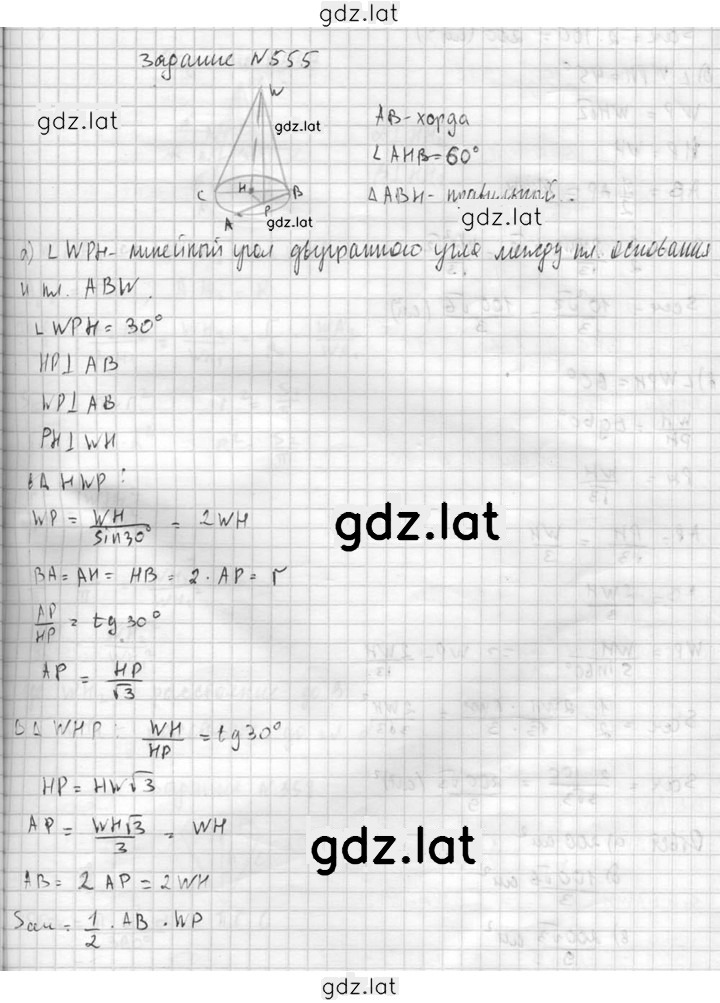 gdz.lat
Задание №555
W
gdz.lat
gdz.lat
АВ-хорда
∠AHB=60°
C H B
A P
ΔABH- правильный.
gdz.lat
а) ∠WPH- линейный угол двугранного угла между пл. основания
и пл. ABW.
∠WPH = 30°
HP⊥AB
WP⊥AB
PH⊥WH
в Δ HWP:
WP = WH/sin30° = 2WH
gdz.lat
BA = AH = HB = 2·AP = r
AP/HP = tg 30°
AP = HP/√3
в Δ WHP: WH/HP = tg30°
HP = HW√3
AP = WH√3/3 = WH
gdz.lat
AB = 2 AP = 2WH
Sсеч = 1/2 · AB · WP
gdz.lat